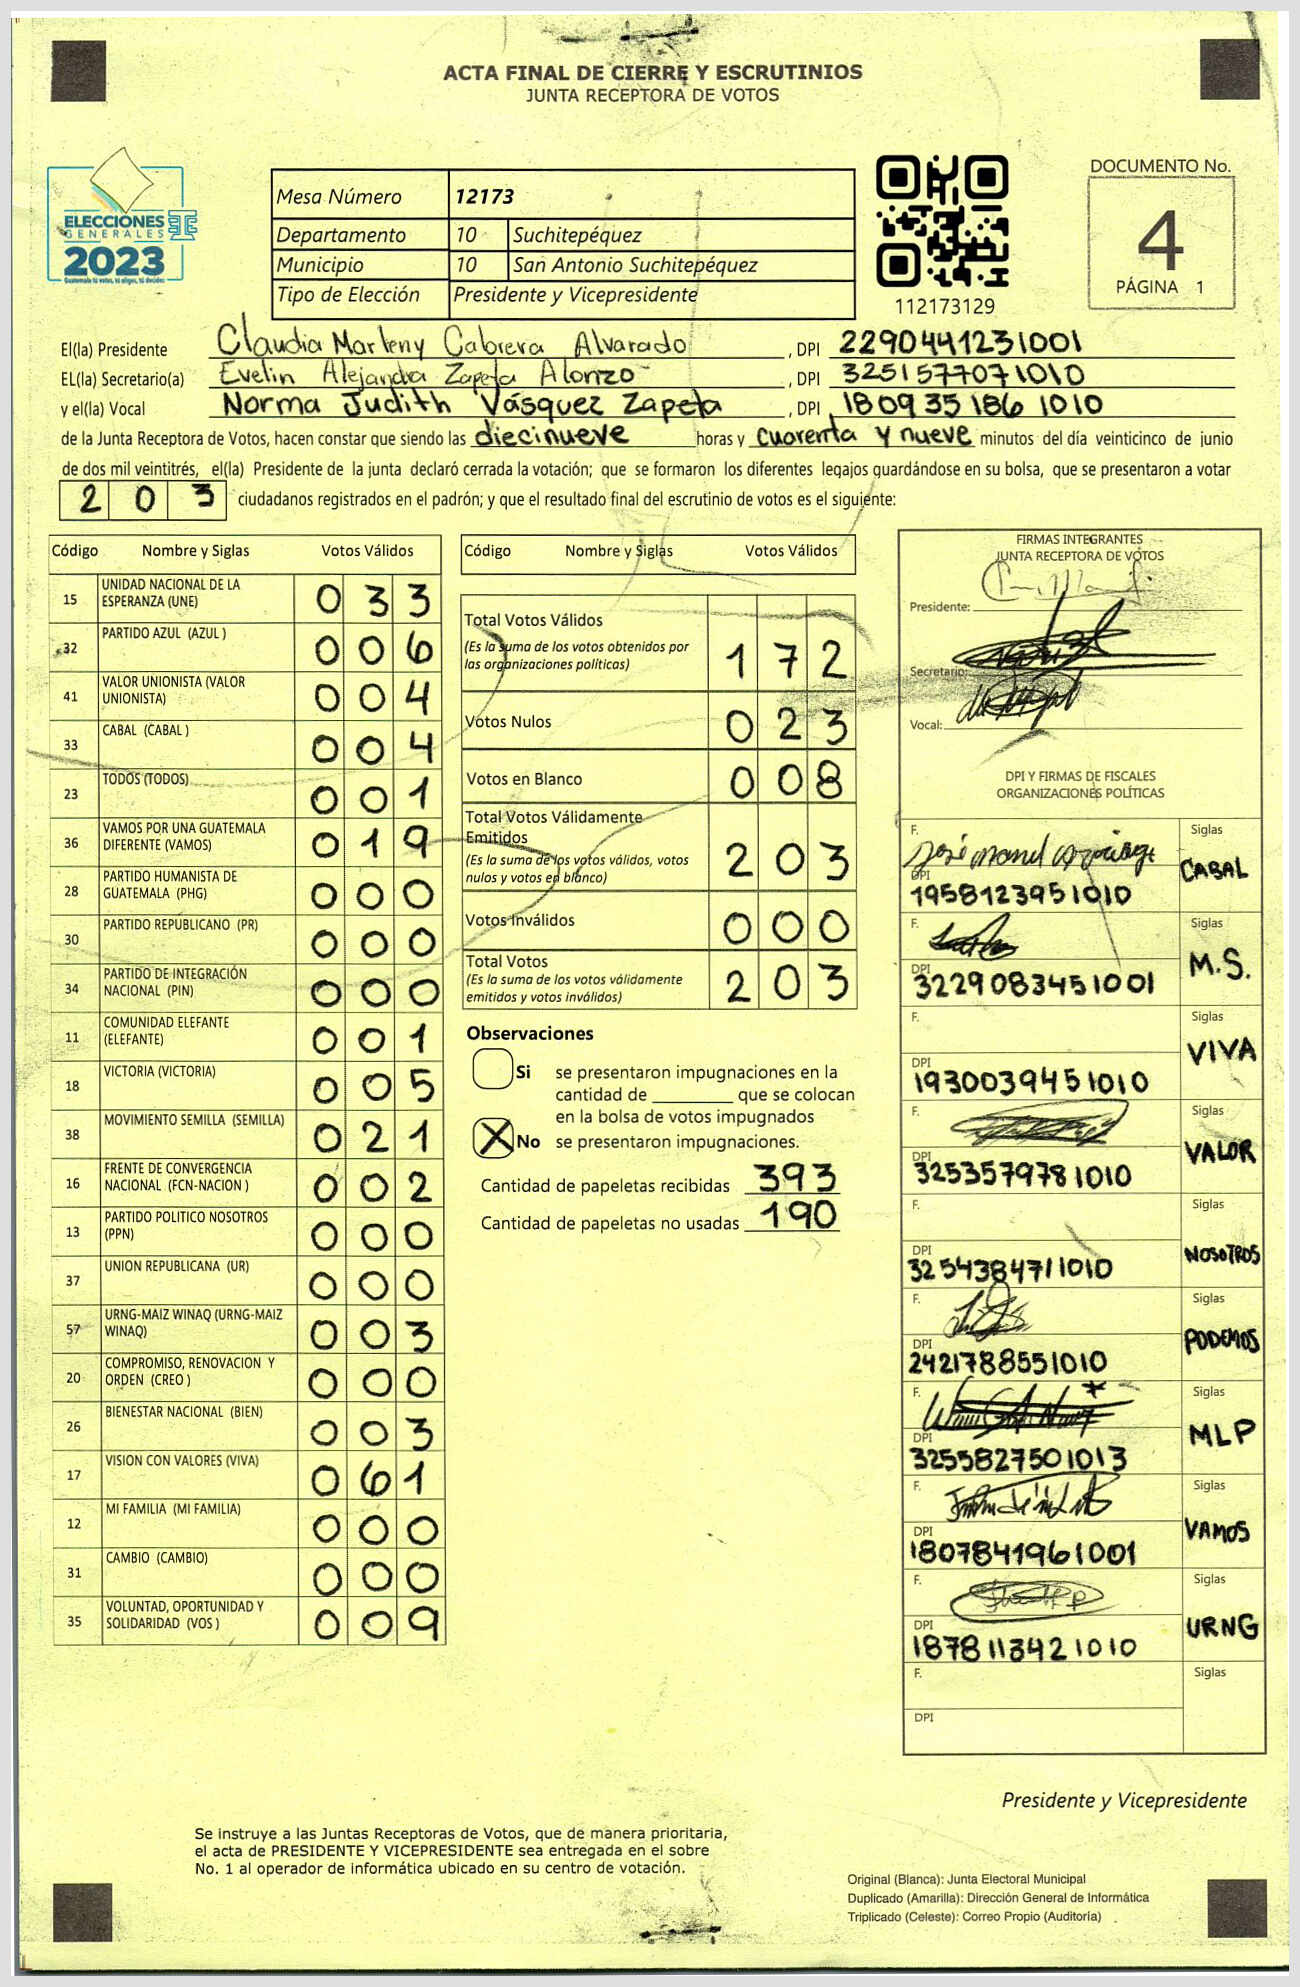 ACTA FINAL DE CIERRE Y ESCRUTINIOS
JUNTA RECEPTORA DE VOTOS
ELECCIONES
GENERALES
2023
Guatemala tú votas, tú eliges, tú decides
Mesa Número 12173
Departamento 10 Suchitepéquez
Municipio 10 San Antonio Suchitepéquez
Tipo de Elección Presidente y Vicepresidente
112173129
DOCUMENTO No.
4
PÁGINA 1
El(la) Presidente Claudia Marleny Cabrera Alvarado, DPI 2290441231001
EL(la) Secretario(a) Evelin Alejandra Zapeta Alonzo, DPI 3251577071010
y el(la) Vocal Norma Judith Vásquez Zapeta, DPI 1809351861010
de la Junta Receptora de Votos, hacen constar que siendo las diecinueve horas y cuarenta y nueve minutos del día veinticinco de junio
de dos mil veintitrés, el(la) Presidente de la junta declaró cerrada la votación; que se formaron los diferentes legajos guardándose en su bolsa, que se presentaron a votar
203 ciudadanos registrados en el padrón; y que el resultado final del escrutinio de votos es el siguiente:
Código Nombre y Siglas Votos Válidos
15 UNIDAD NACIONAL DE LA
ESPERANZA (UNE) 033
32 PARTIDO AZUL (AZUL ) 006
41 VALOR UNIONISTA (VALOR
UNIONISTA) 004
33 CABAL (CABAL ) 004
23 TODOS (TODOS) 001
36 VAMOS POR UNA GUATEMALA
DIFERENTE (VAMOS) 019
28 PARTIDO HUMANISTA DE
GUATEMALA (PHG) 000
30 PARTIDO REPUBLICANO (PR) 000
34 PARTIDO DE INTEGRACIÓN
NACIONAL (PIN) 000
11 COMUNIDAD ELEFANTE
(ELEFANTE) 001
18 VICTORIA (VICTORIA) 005
38 MOVIMIENTO SEMILLA (SEMILLA) 021
16 FRENTE DE CONVERGENCIA
NACIONAL (FCN-NACION ) 002
13 PARTIDO POLITICO NOSOTROS
(PPN) 000
37 UNION REPUBLICANA (UR) 000
57 URNG-MAIZ WINAQ (URNG-MAIZ
WINAQ) 003
20 COMPROMISO, RENOVACION Y
ORDEN (CREO ) 000
26 BIENESTAR NACIONAL (BIEN) 003
17 VISION CON VALORES (VIVA) 061
12 MI FAMILIA (MI FAMILIA) 000
31 CAMBIO (CAMBIO) 000
35 VOLUNTAD, OPORTUNIDAD Y
SOLIDARIDAD (VOS ) 009
Código Nombre y Siglas Votos Válidos
Total Votos Válidos
(Es la suma de los votos obtenidos por
las organizaciones políticas) 172
Votos Nulos 023
Votos en Blanco 008
Total Votos Válidamente
Emitidos
(Es la suma de los votos válidos, votos
nulos y votos en blanco) 203
Votos Inválidos 000
Total Votos
(Es la suma de los votos válidamente
emitidos y votos inválidos) 203
Observaciones
Si se presentaron impugnaciones en la
cantidad de ________ que se colocan
en la bolsa de votos impugnados
X No se presentaron impugnaciones.
Cantidad de papeletas recibidas 393
Cantidad de papeletas no usadas 190
FIRMAS INTEGRANTES
JUNTA RECEPTORA DE VOTOS
Presidente:
Secretario:
Vocal:
DPI Y FIRMAS DE FISCALES
ORGANIZACIONES POLÍTICAS
F. Siglas
CABAL
DPI
1958123951010
F. Siglas
M.S.
DPI
3229083451001
F. Siglas
VIVA
DPI
1930039451010
F. Siglas
VALOR
DPI
3253579781010
F. Siglas
NOSOTROS
DPI
3254384711010
F. Siglas
PODEMOS
DPI
2421788551010
F. Siglas
MLP
DPI
3255827501013
F. Siglas
VAMOS
DPI
1807841961001
F. Siglas
URNG
DPI
1878113421010
F. Siglas
DPI
Presidente y Vicepresidente
Se instruye a las Juntas Receptoras de Votos, que de manera prioritaria,
el acta de PRESIDENTE Y VICEPRESIDENTE sea entregada en el sobre
No. 1 al operador de informática ubicado en su centro de votación.
Original (Blanca): Junta Electoral Municipal
Duplicado (Amarilla): Dirección General de Informática
Triplicado (Celeste): Correo Propio (Auditoría)